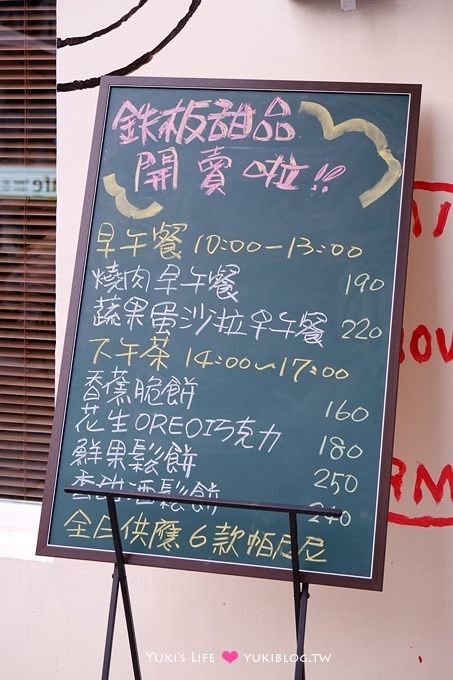 鉄板甜品
開賣啦!!
早午餐 10:00-13:00
燒肉早午餐 190
蔬果蛋沙拉早午餐 220
下午茶 14:00~17:00
香蕉脆餅 160
花生OREO巧克力 180
鮮果鬆餅 250
香甜酒鬆餅 240
全日供應6款帕尼尼
RM
YUKI'S LIFE ♥ YUKIBLOG.TW